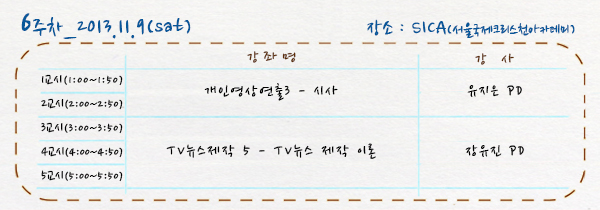 6주차_2013.11.9(sat) 장소 : SICA(서울국제크리스천아카데미)
강좌명 강사
1교시(1:00~1:50)
개인영상연출3 - 시사 유지은 PD
2교시(2:00~2:50)
3교시(3:00~3:50)
4교시(4:00~4:50) TV뉴스제작 5 - TV뉴스 제작 이론 장유진 PD
5교시(5:00~5:50)